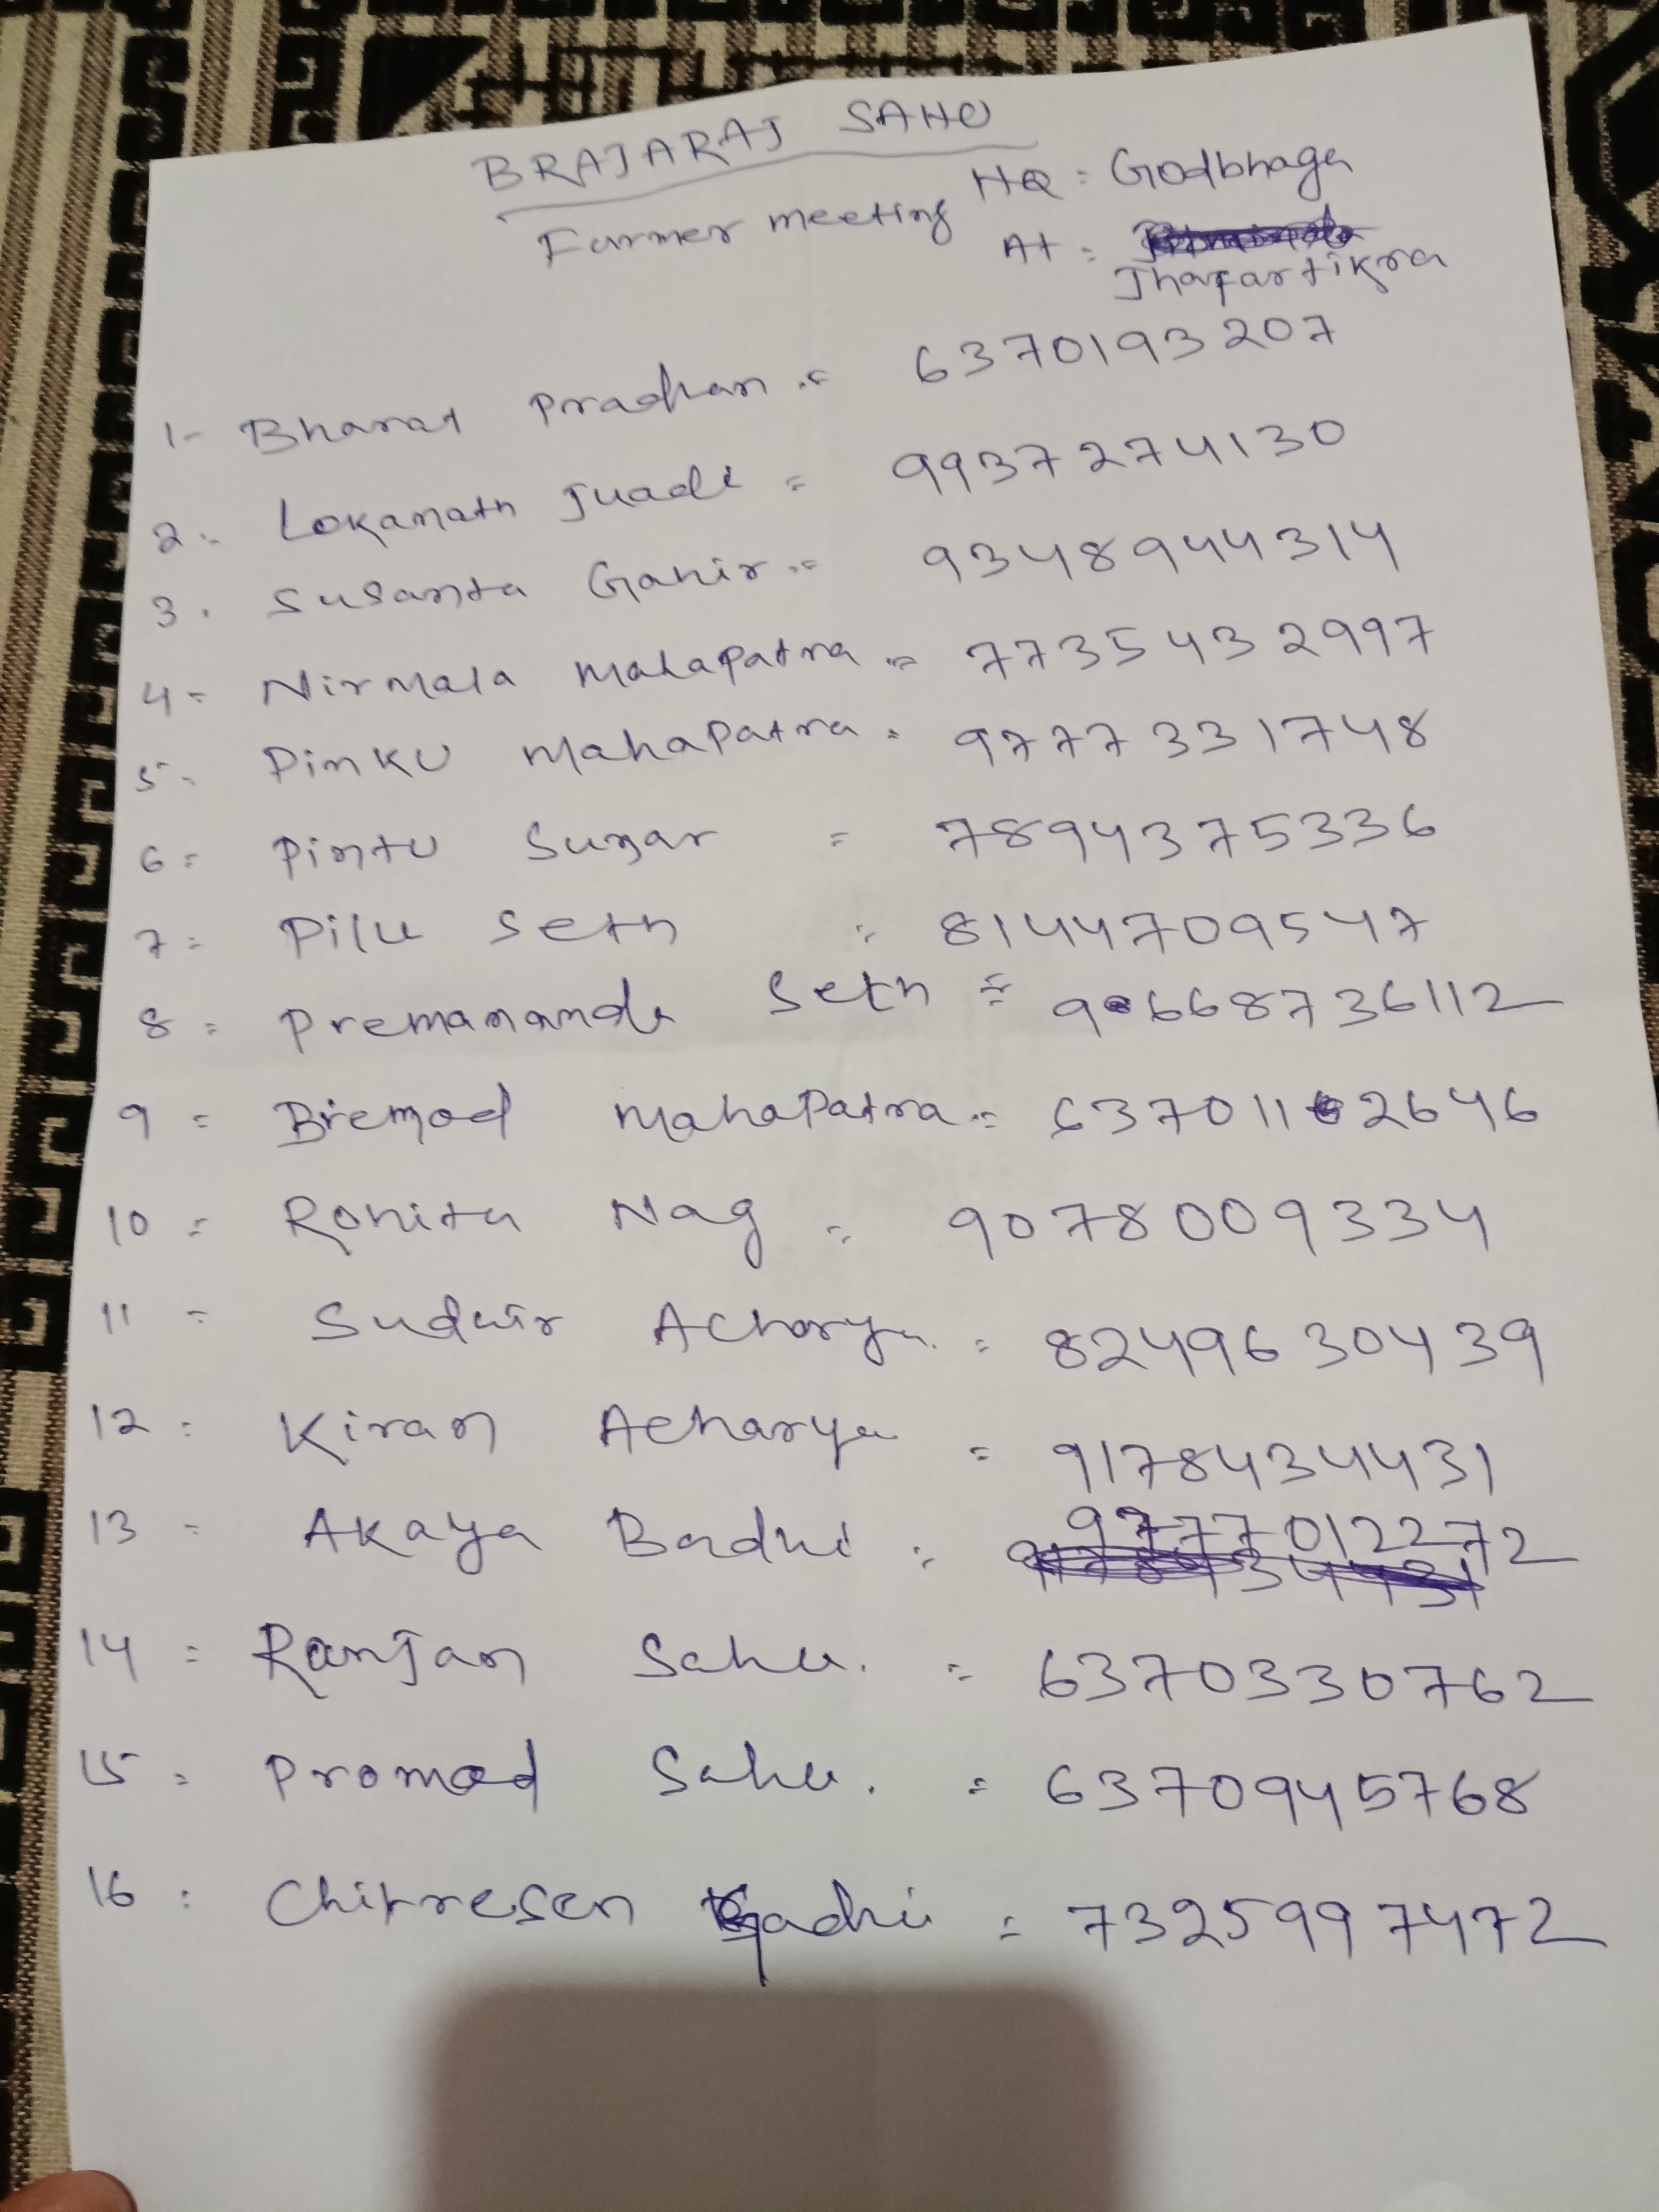 BRAJARAJ SAHO
Farmer meeting HQ = Godbhaga
At = Jharartikra
1- Bharat Pradhan = 6370193207
2. Lokanath Juadi = 9937274130
3. Susanta Gahir = 9348944314
4= Nirmala Mahapatra = 7735432997
5. Pinku Mahapatra = 9777331748
6= Pintu Sunar = 7894375336
7= Pilu Seth = 8144709547
8= Premananda Seth = 9668736112
9= Bremod Mahapatra = 6370112646
10= Rohita Nag = 9078009334
11= Sudhir Acharya = 8249630439
12= Kiran Acharya = 9178434431
13= Akaya Badhi = 9777012272
14= Ranjan Sahu. = 6370330762
15= Promod Sahu. = 6370945768
16= Chitresen = 7325997472